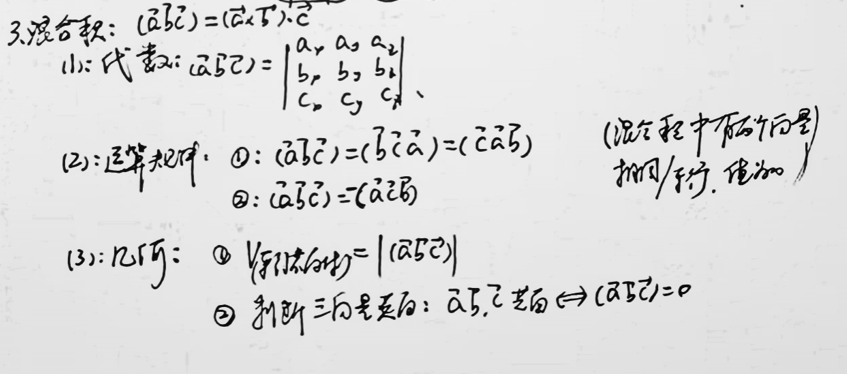 3.混合积: (a⃗b⃗c⃗)=(a⃗×b⃗)·c⃗
(1): 代数: (a⃗b⃗c⃗)= |aₓ a_y a_z|
|bₓ b_y b_z|
|cₓ c_y c_z|、
(2):运算规律: ①: (a⃗b⃗c⃗)=(b⃗c⃗a⃗)=(c⃗a⃗b⃗)
②: (a⃗b⃗c⃗)=-(a⃗c⃗b⃗)
(混合积中有两个向量
相同/平行,值为0)
(3):几何: ① V(平行六面体)=|(a⃗b⃗c⃗)|
② 判断三向量共面: a⃗,b⃗,c⃗共面⇔(a⃗b⃗c⃗)=0